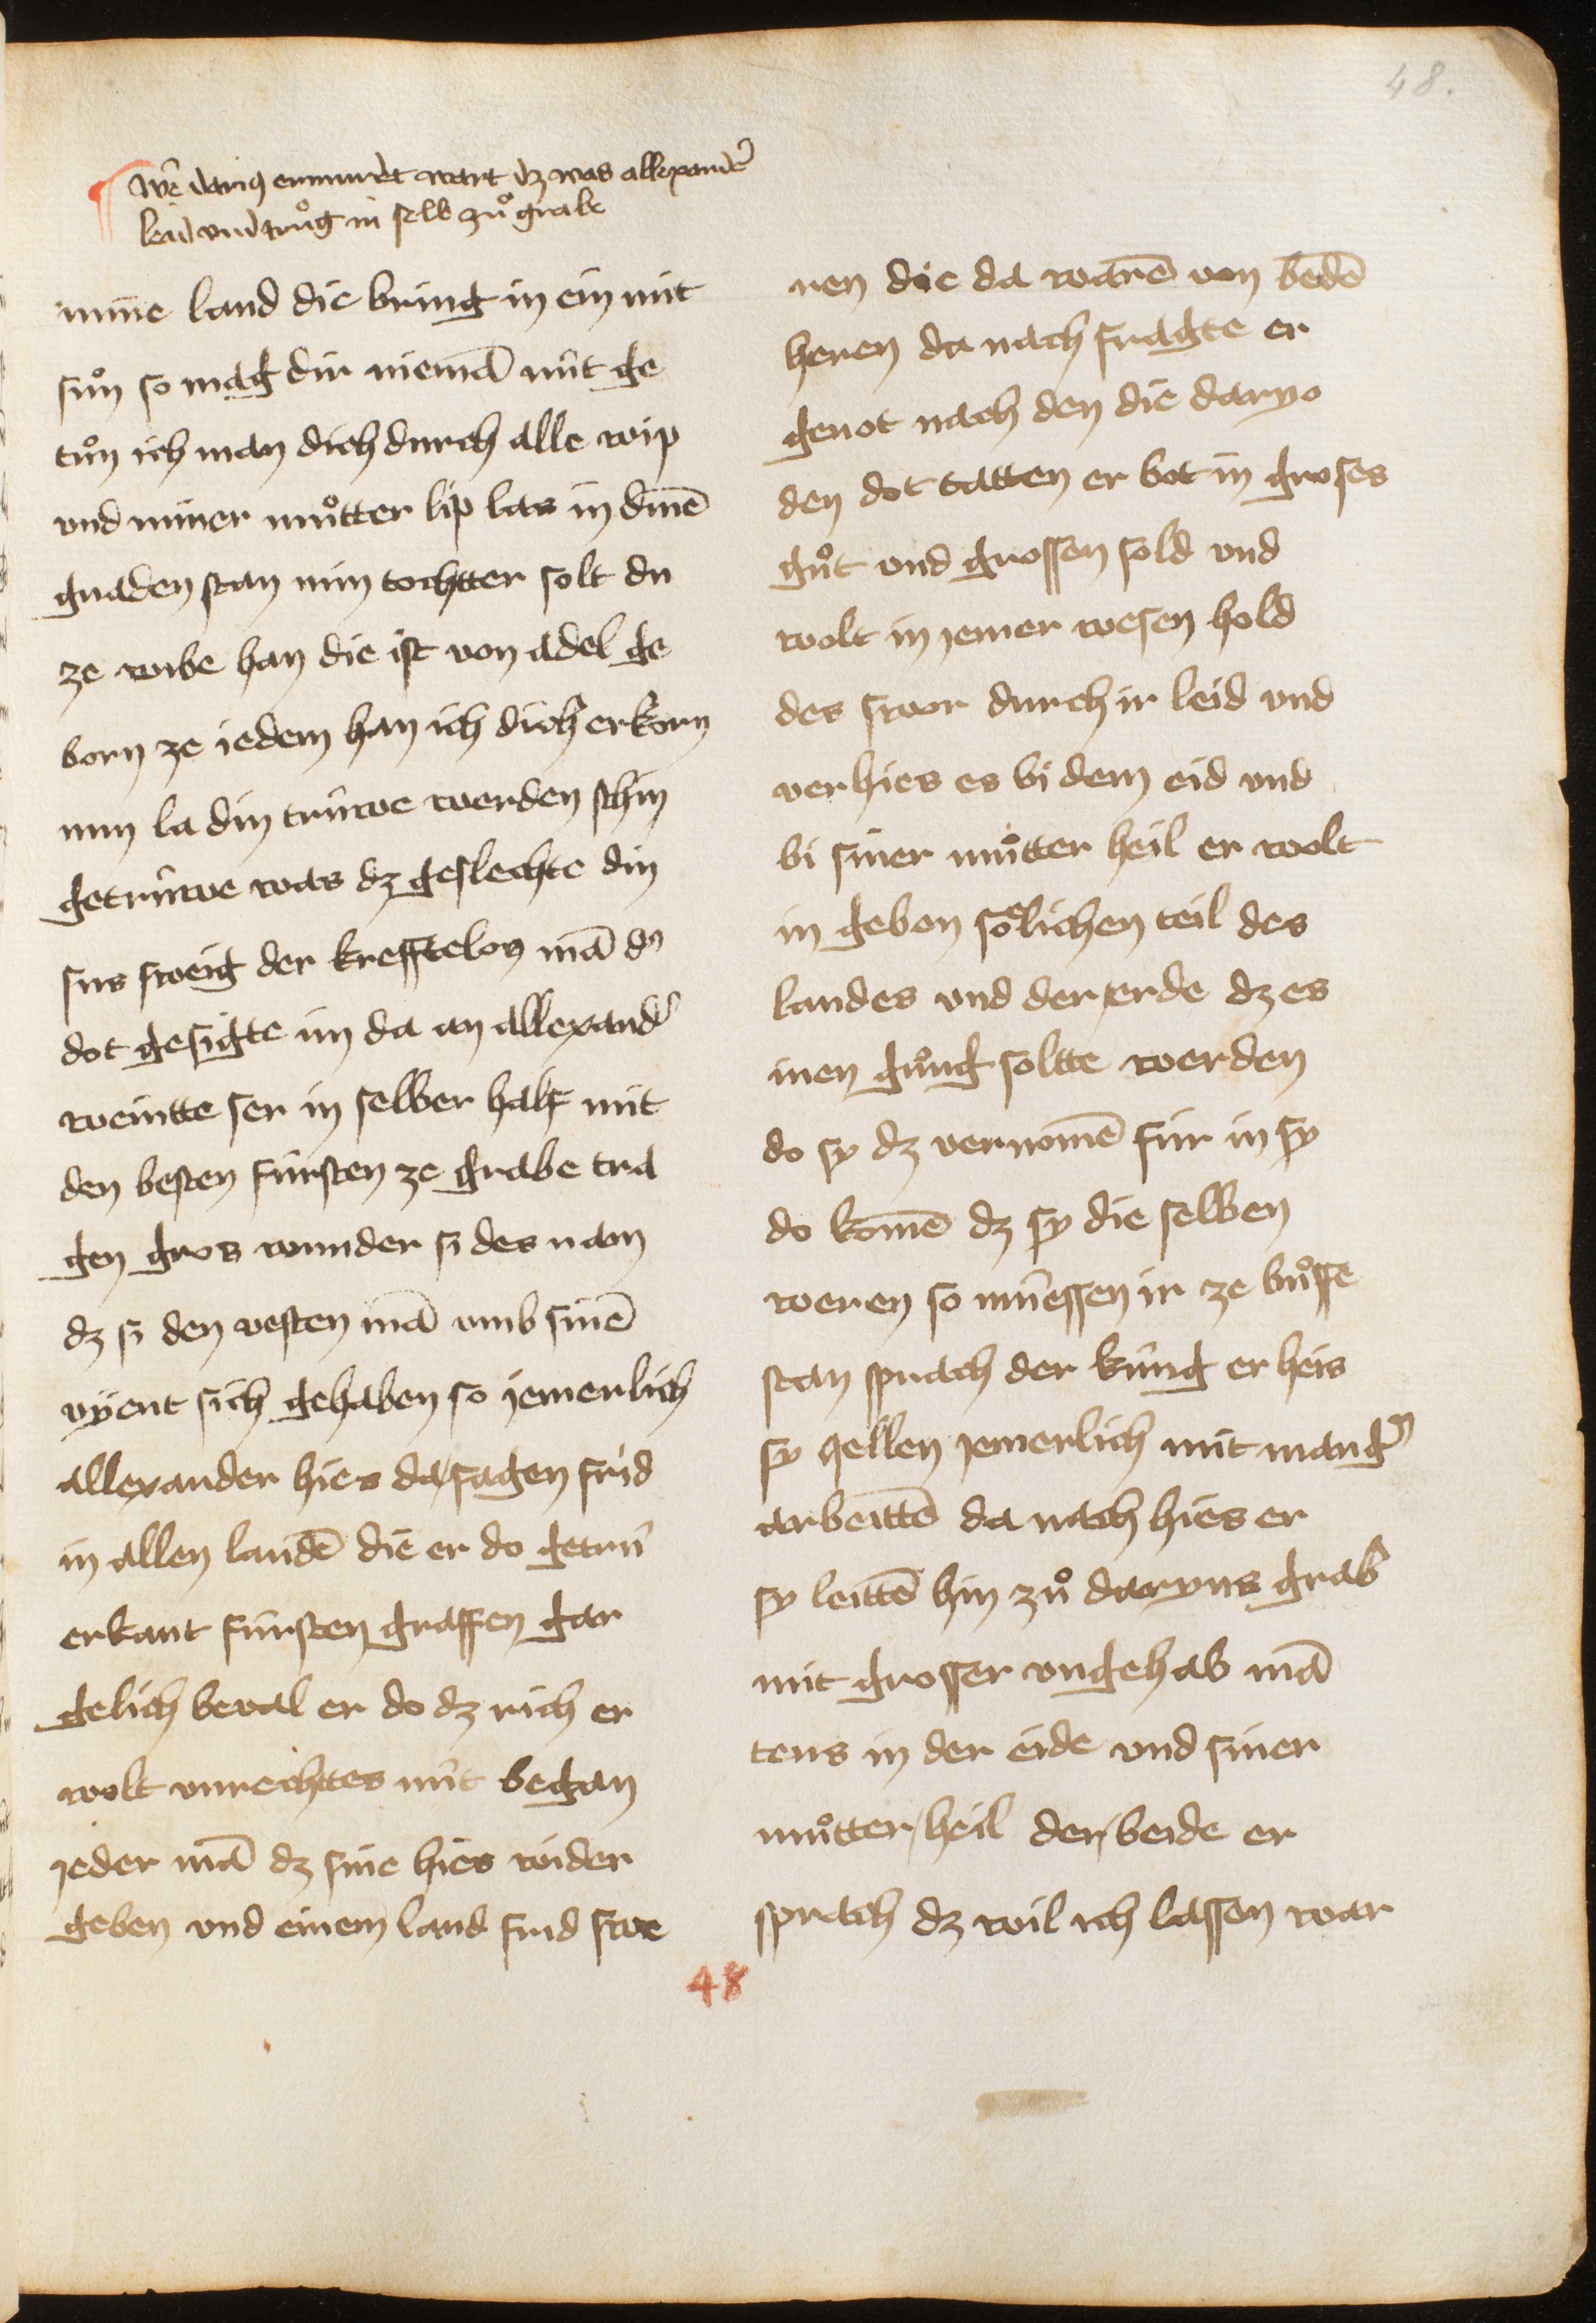 48.
Wie darius ermurdet wart dz was allexander
leid vnd trůg in selb zů grabe
mine land die bring in ein mit
sůn so mag dir niemā nüt ge
tůn ich man dich durch alle wip
vnd miner můtter lip las in dinē
gnaden stan min tochtter solt du
ze wibe han die ist von adel ge
born ze iedem han ich dich erkorn
nun la din trüwe werden schin
getrüwe was dz geslechte din
sus sweig der krefftelos mā der
dot gesigte im da an allexander
weintte ser in selber half mit
den besten fürsten ze grabe tra
gen gros wunder si des nam
dz si den vesten mā vmb sinē
vÿent sich gehaben so jemerlich
allexander hies da sagen frid
in allen landē die er do getrü
erkant fürsten graffen gar
gelich beval er do dz rich er
wolt vnrechttes nüt began
jeder mā dz sine hies wider
geben vnd einem land frid swe
nen die da warē von bedē
heren da nach fragte er
genot nach den die daryo
den dot tatten er bot in groses
gůt vnd grossen sold vnd
wolt in jemer wesen hold
des swor durch ir leid vnd
verhies es bi dem eid vnd
bi siner můtter heil er wolt
in geben soͤlichen teil des
landes vnd der erde dz es
inen gnůg soltte werden
do sy dz vernomē für in sy
do komē dz sy die selben
weren so müessen ir ze bůsse
stan sprach der küng er heis
sy qellen jemerlich mit manger
arbeittē da nach hies er
sy leittē hin zů daryus grab
mit grosser vngehab mā
tens in der eide vnd siner
můtter heil der beide er
sprach dz wil ich lassen war
48